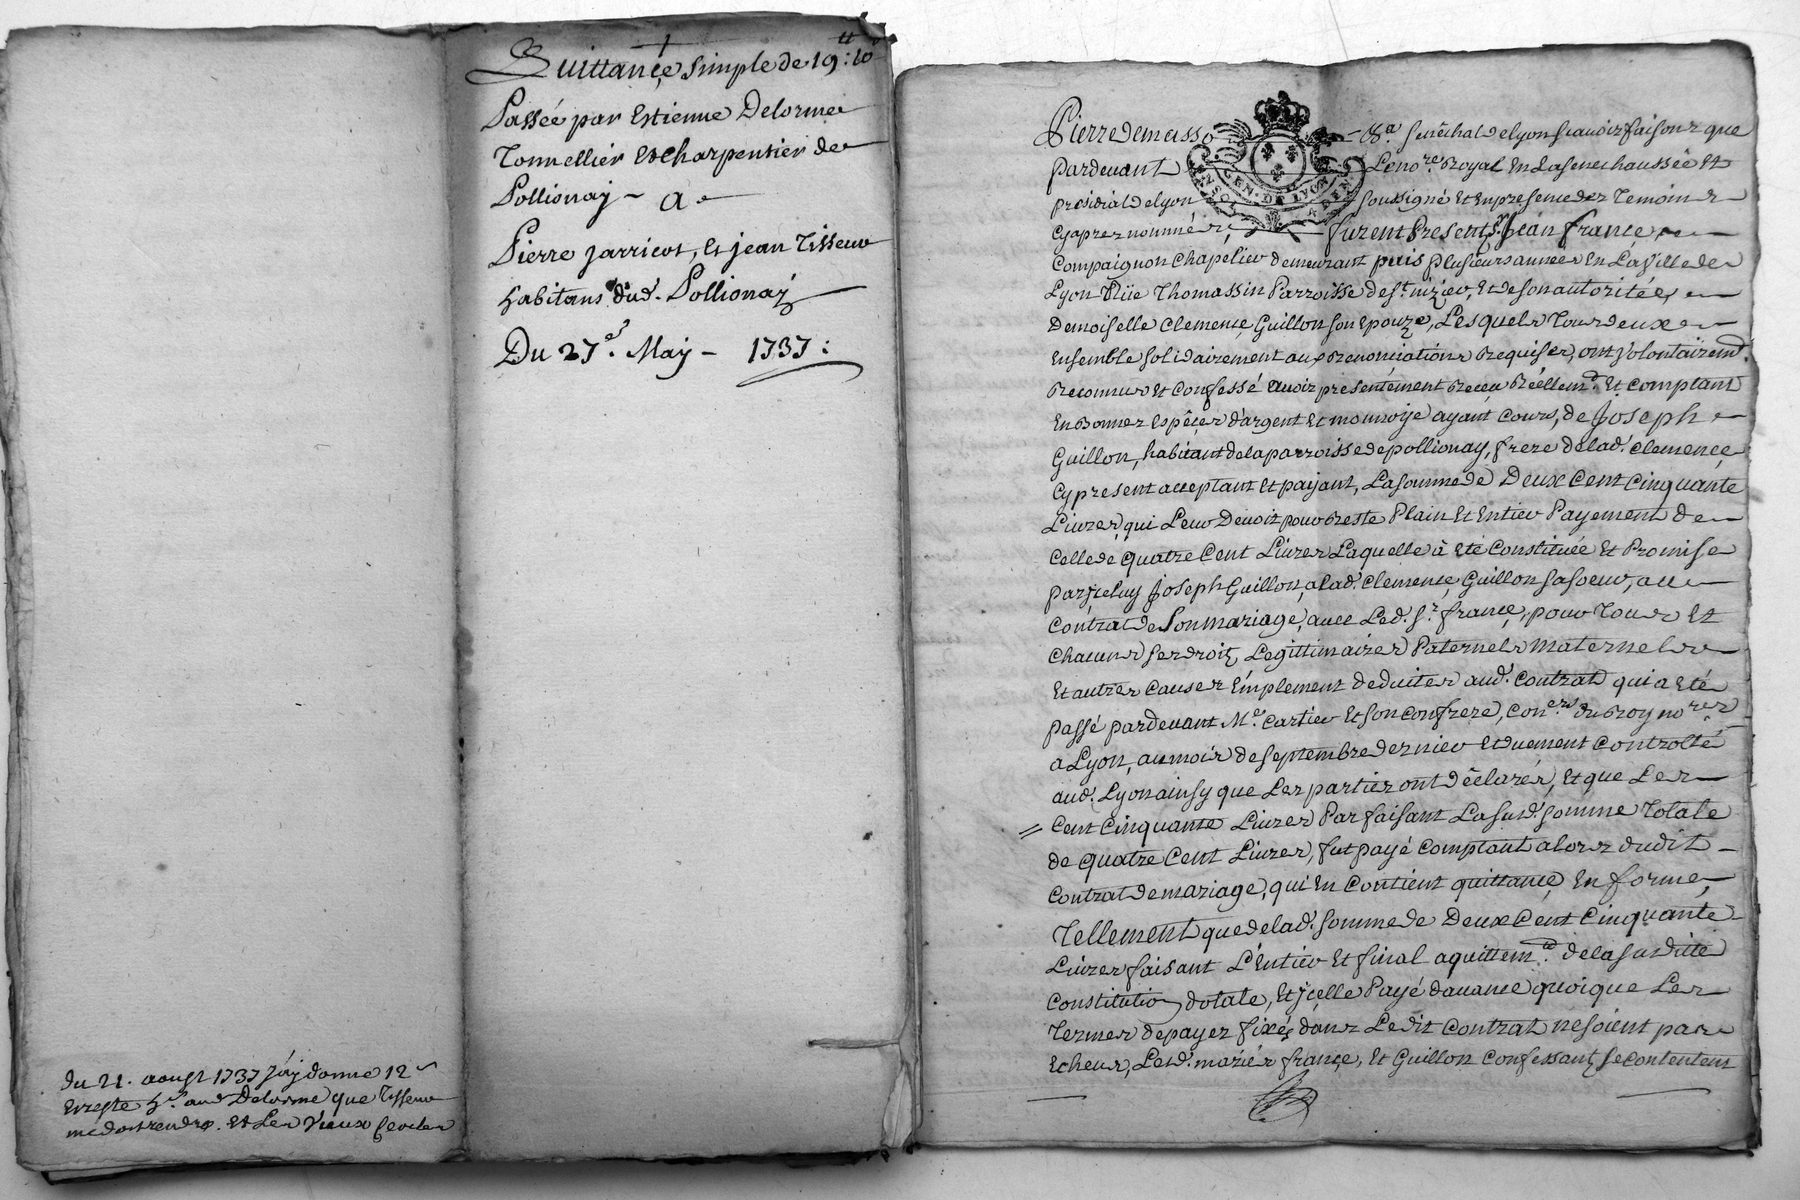 Quittance simple de 19:10
Passée par Estienne Delorme
Tonnellier et Charpentier de
Pollionay - a -
Pierre Jarricot, et jean Tisseur
habitans dud. Pollionay
Du 27e. May - 1737:
du 21. aoust 1737 j'ay donné 12
et reste aud Delorme que Tisseur
me doit rendre. et les vieux cercles
Pierre de masso senéchal de lyon scavoir faisons que
pardevant Le nore. Royal en La senechaussée et
présidial de lyon soussigné et en presence des Temoins
cy aprez nommés, furent Presents Sr. Jean françe
Compaignon Chapelier demeurant puis plusieurs années en La ville de
Lyon Rüe Thomassin Parroisse de st. nizier, et de son autorité,
Demoiselle Clemençe Guillon son epouze, Lesquels Tous deux
ensemble solidairement aux renonciations requises, ont volontairemt.
Reconnus et confessé avoir presentement Receu Réellemt. et comptant
en bonnes espêces d'argent et monnoye ayant cours, de Joseph
Guillon, habitant de la parroisse de pollionay, frere de lad. Clemence
cy present acceptant et payant, La somme de Deux Cent Cinquante
Livres, qui Leur Devoit pour Reste Plain et Entier Payement de
celle de Quatre Cent Livres Laquelle à eté Constituée et Promise
par iceluy Joseph Guillon, a lad. Clemençe Guillon sa soeur, au
contrat de son mariage, avec Led. Sr. françe, pour Tous et
Chacuns ses droits Legittimaires Paternels Maternels
et autres causes emplement deduites aud. Contrat qui a eté
passé pardevant Me. Cartier et son confrere, coners. du Roy nores
a Lyon, au mois de septembre dernier et duement controllé
aud. Lyon ainsy que Les parties ont déclarés, et que Les
Cent Cinquante Livres Parfaisant La susd. somme Totale
de Quatre Cent Livres, fut payé comptant alors dudit
contrat de mariage, qui en contient quittance en forme,
Tellement que de lad. somme de Deux Cent Cinquante
Livres faisant L'entier et final aquittemt. de la susditte
constitution dotale, et icelle Payé d'avance quoique Les
Termes de payer fixés dans Ledit Contrat ne soient pas
Echeus, Lesd. mariés françe, et Guillon confessants se contentent